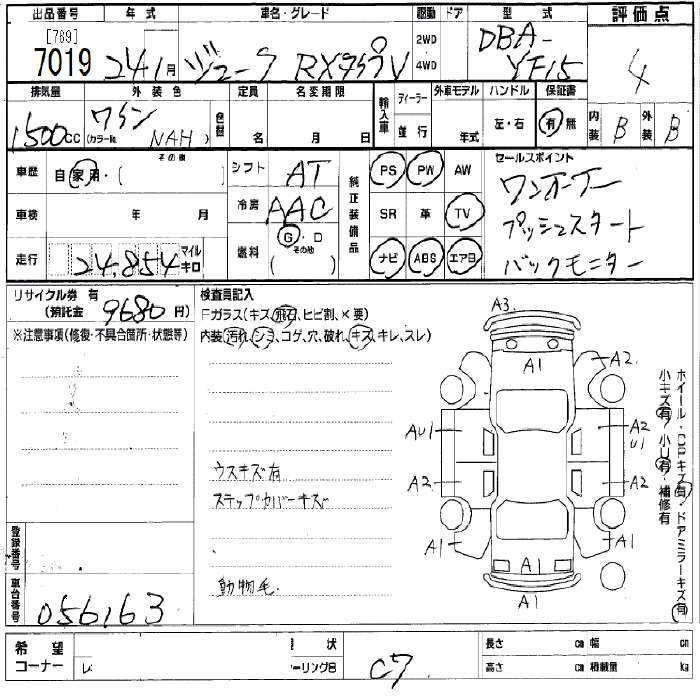 出品番号 年式 車名・グレード 駆動 ドア 型式 評価点
[789]
7019 24 1月 ジューク RX タイプV 2WD 4WD DBA-YF15 4
排気量 外装色 定員 名変期限 輸入車 ディーラー 外車モデル ハンドル 保証書 内装 外装
1500cc ワイン (カラーNo. NAH) 色替 名 月 日 並行 年式 左・右 有 無 B B
車歴 自家用・( その他 ) シフト AT 純正装備品 PS PW AW セールスポイント
車検 年 月 冷房 AAC SR 革 TV ワンオーナー
プッシュスタート
走行 24,854 マイル キロ 燃料 G・D (その他) ナビ ABS エアB バックモニター
リサイクル券 有
(預託金 9680 円)
※注意事項(修復・不具合箇所・状態等)
検査員記入
Fガラス(キズ、飛石、ヒビ割、×要)
内装(汚れ、シミ、コゲ、穴、破れ、キズ、キレ、スレ)
ウスキズ有
ステップカバーキズ
動物毛
A3
A1
A2
AU1
A2
U1
A2
A2
A1
A1
A1
A1
ホイール・CPキズ有・ドアミラーキズ有
小キズ有 小U有・補修有
登録番号
車台番号 056163
希望コーナー 状 長さ cm 幅 cm
ーリングB C7 高さ cm 積載量 kg